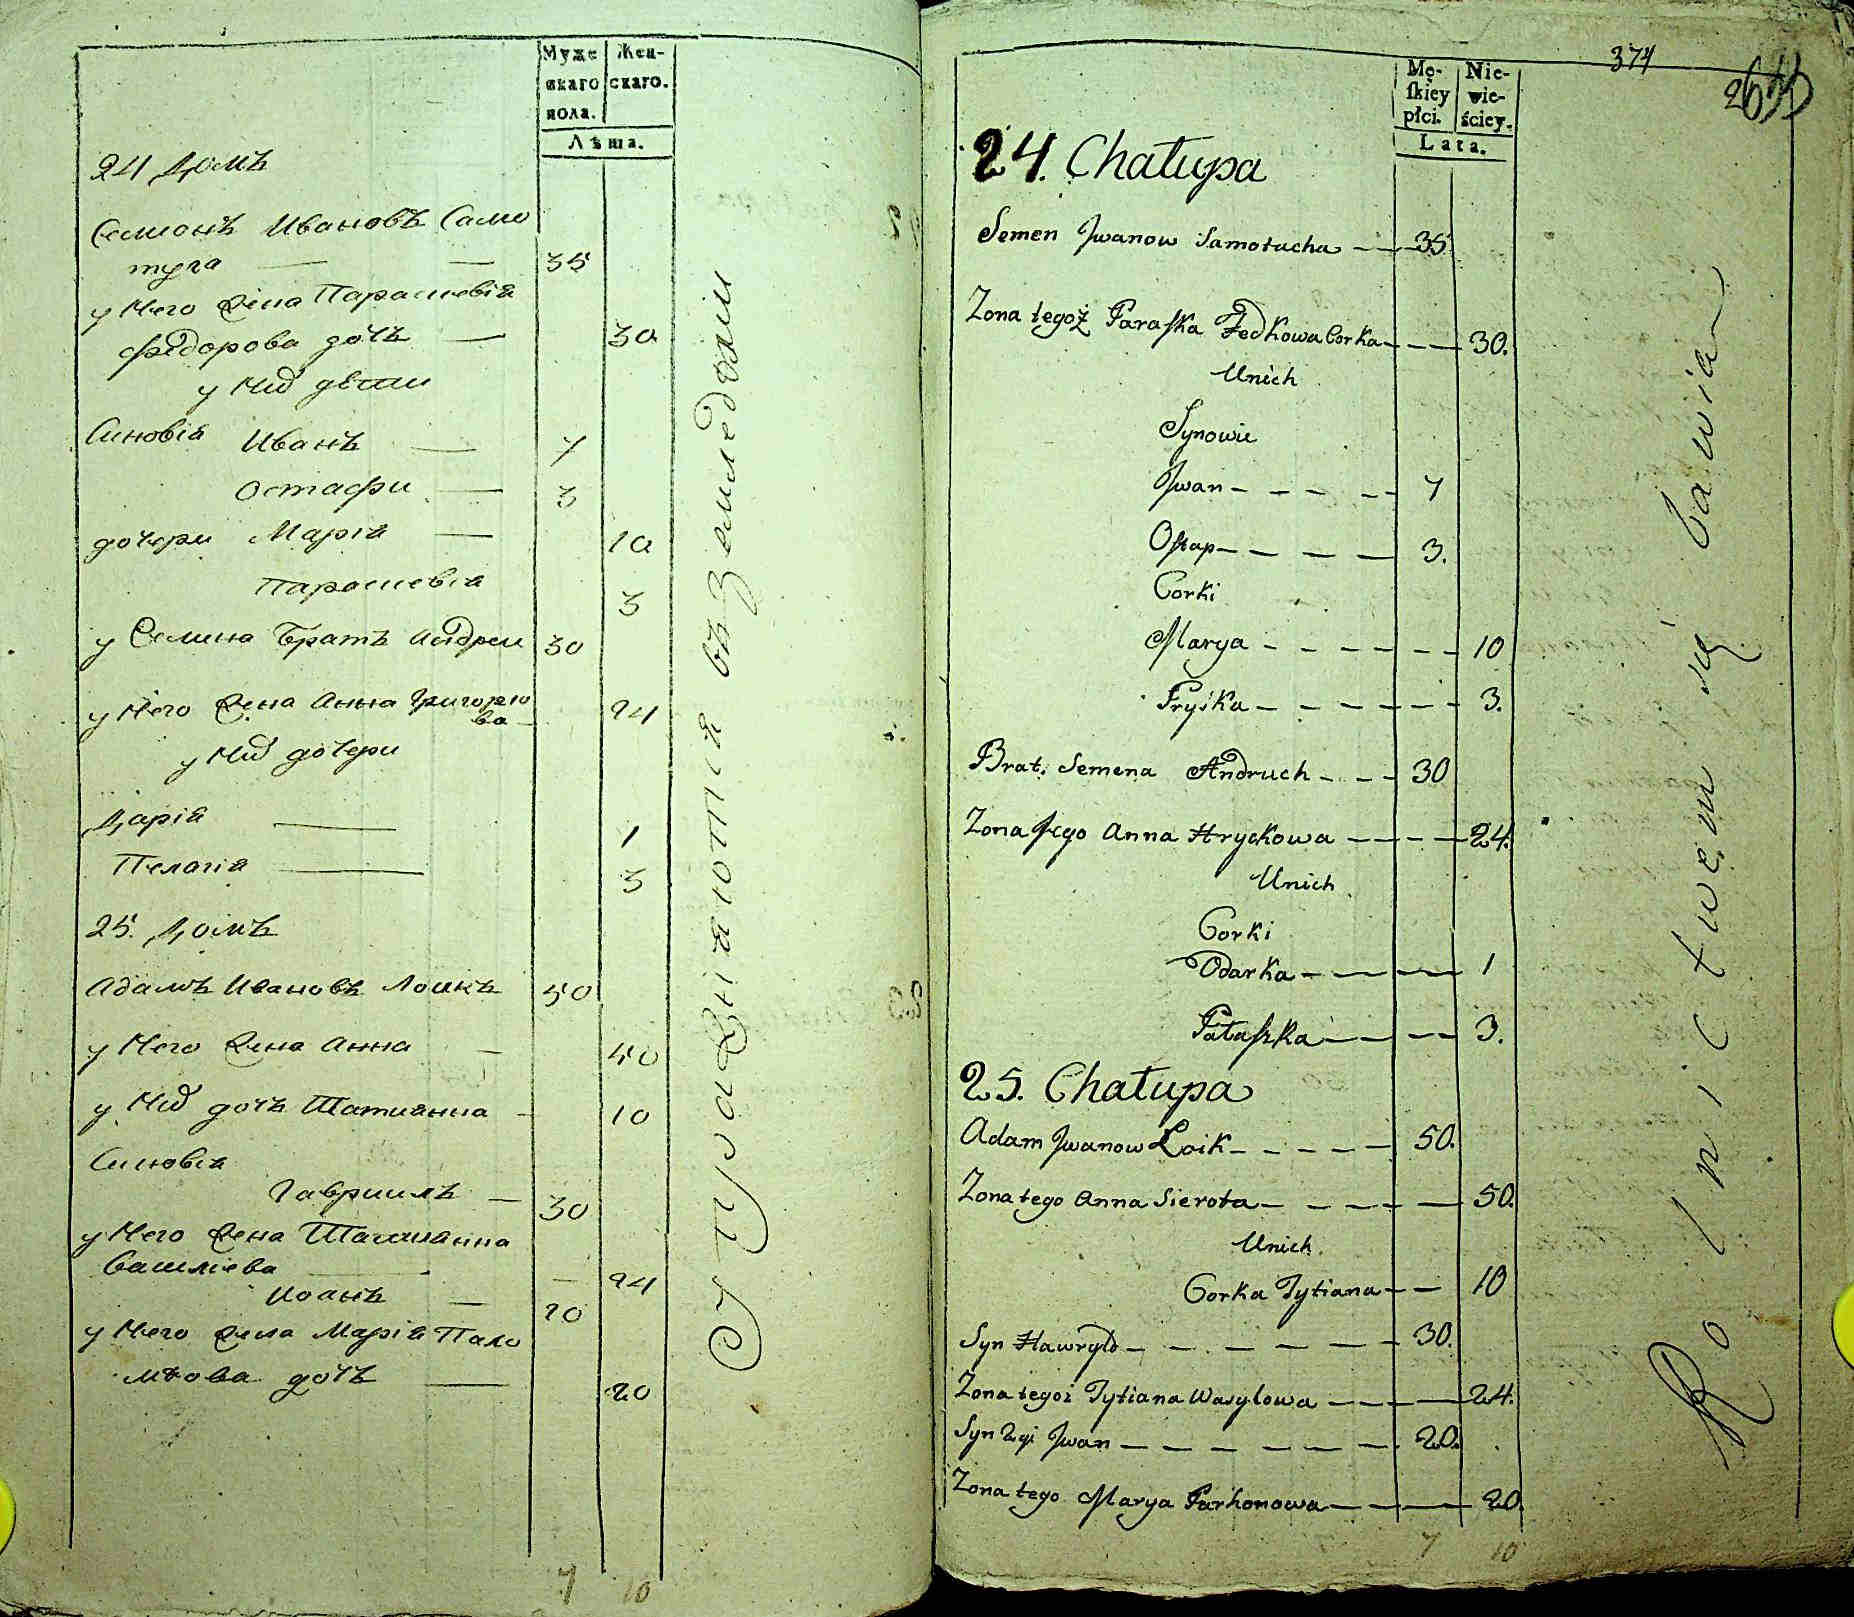 Муже Жен-
скаго скаго.
пола.
Лѣта.
24 Домъ
Семионъ Ивановъ Само
туга — — 35
у Него Жена Парасковія
Федорова дочь — 30
у Них дѣти
Синовія Иванъ — 7
Остафи — 3
дочери Марія — 10
Парасковія 3
у Семиона Братъ Андреи 30
у Него Жена Анна Григорю
ва — 24
у Них дочери
Дарія — 1
Пелагія — 3
25. Домъ
Адамъ Ивановъ Лоикъ 50
у Него Жена Анна — 50
у Них дочь Татианна — 10
Синовія
Гавриилъ — 30
у Него Жена Татианна
Василіева — 24
Иоанъ — 20
у Него Жена Марія
дочь — 20
7 10
Упражняются въ земледѣліи
374
Mę- Nie-
skiey wie-
płci. ściey.
Lata.
24. Chałupa
Semen Jwanow Samotucha — 35
Zona tegoż Paraska Fedkowa Corka — 30.
Unich
Synowie
Jwan — 7
Ostap — 3.
Corki
Marya — 10
Pryska — 3.
Brat. Semena Andruch — 30
Zona Jego Anna Hryckowa — 24.
Unich
Corki
Odarka — 1
Pałaszka — 3.
25. Chałupa
Adam Jwanow Łoik — 50.
Zona tego Anna Sierota — 50.
Unich
Corka Tytiana — 10
Syn Hawryło — 30.
Zona tegoż Tytiana Wasylowa — 24.
Syn 2gi Jwan — 20.
Zona tego Marya Parhonowa — 20.
7 10
Rolnictwem się bawią